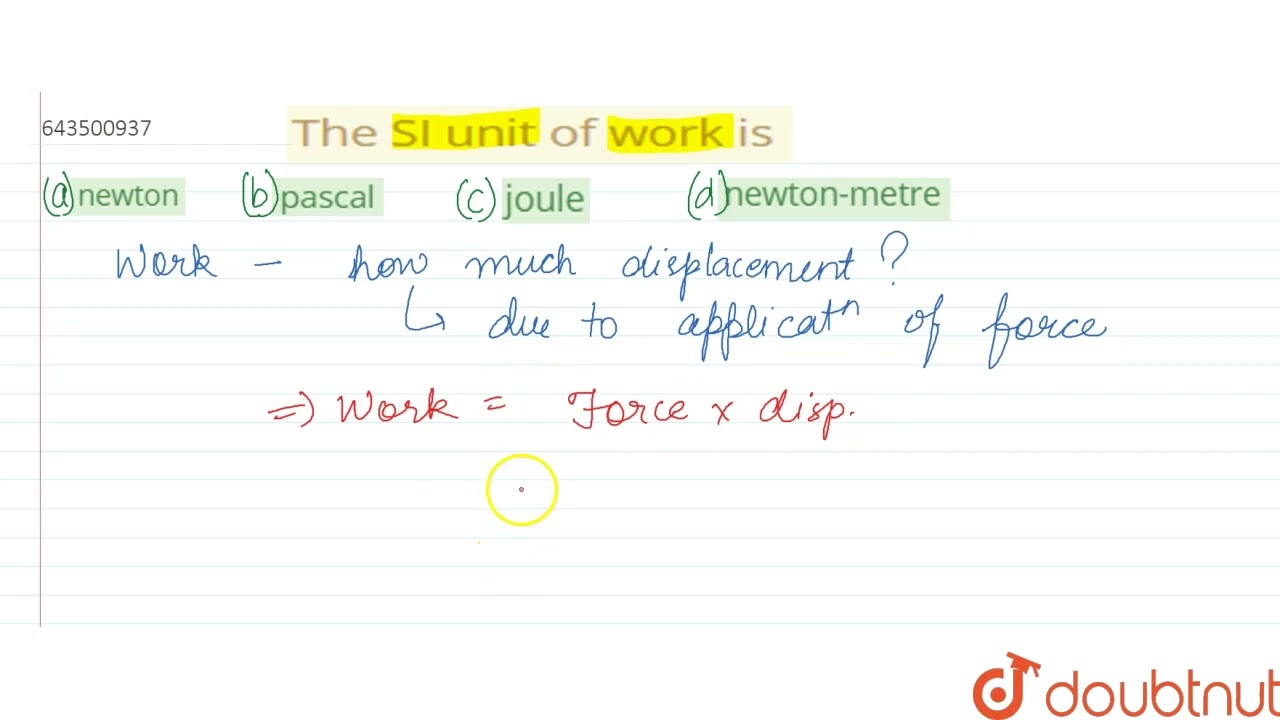 643500937
The SI unit of work is
(a) newton (b) pascal (c) joule (d) newton-metre
Work - how much displacement?
↳ due to applicatⁿ of force
⇒ Work = Force × disp.
doubtnut